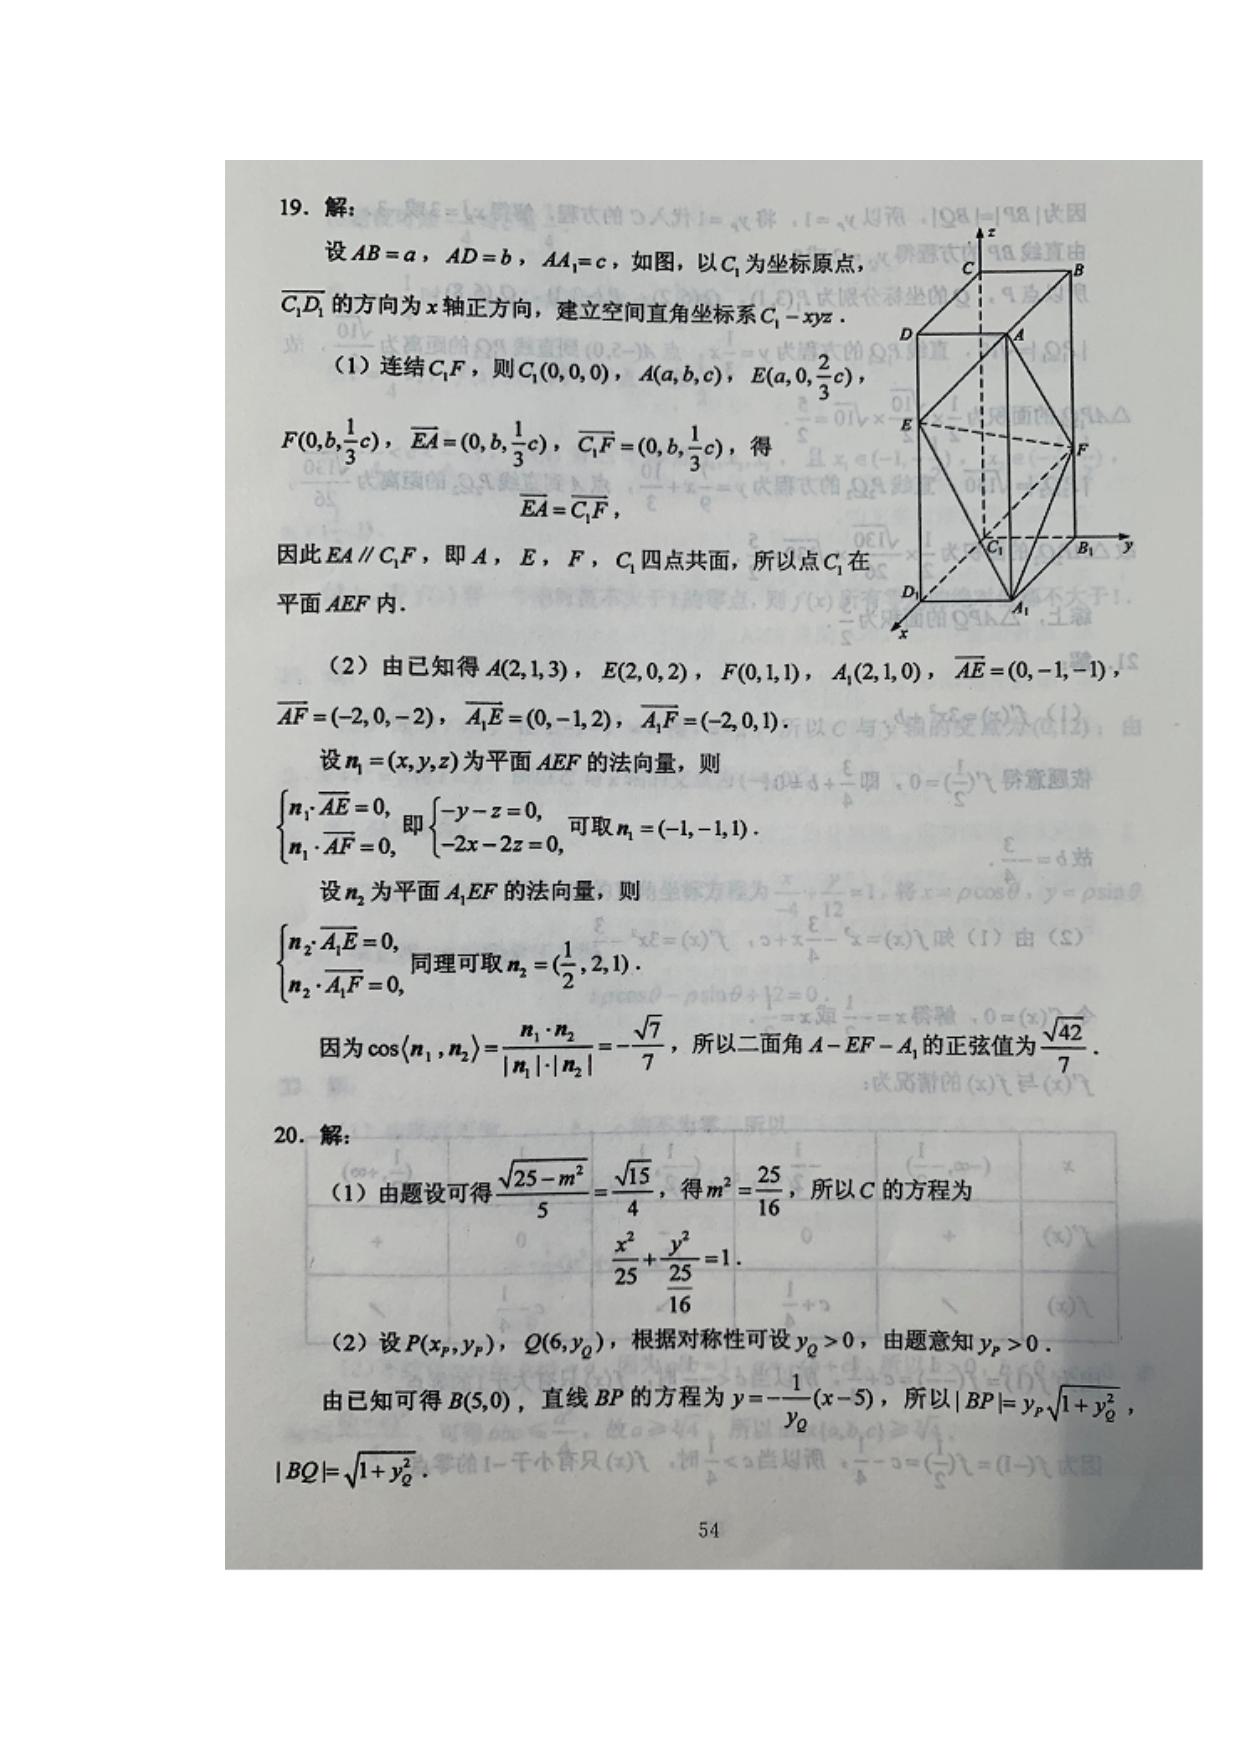 19. 解:
设 AB = a, AD = b, AA₁ = c, 如图, 以 C₁ 为坐标原点,
$\overrightarrow{C_1D_1}$ 的方向为 x 轴正方向, 建立空间直角坐标系 C₁ − xyz.
(1) 连结 C₁F, 则 C₁(0,0,0), A(a,b,c), $E(a,0,\frac{2}{3}c)$,
$F(0,b,\frac{1}{3}c)$, $\overrightarrow{EA}=(0,b,\frac{1}{3}c)$, $\overrightarrow{C_1F}=(0,b,\frac{1}{3}c)$, 得
$\overrightarrow{EA}=\overrightarrow{C_1F}$,
因此 EA // C₁F, 即 A, E, F, C₁ 四点共面, 所以点 C₁ 在
平面 AEF 内.
z
C
B
D
A
E
F
C₁
B₁
y
D₁
A₁
x
(2) 由已知得 A(2,1,3), E(2,0,2), F(0,1,1), A₁(2,1,0), $\overrightarrow{AE}=(0,-1,-1)$,
$\overrightarrow{AF}=(-2,0,-2)$, $\overrightarrow{A_1E}=(0,-1,2)$, $\overrightarrow{A_1F}=(-2,0,1)$.
设 n₁ = (x,y,z) 为平面 AEF 的法向量, 则
$\begin{cases} n_1\cdot\overrightarrow{AE}=0, \\ n_1\cdot\overrightarrow{AF}=0, \end{cases}$ 即 $\begin{cases} -y-z=0, \\ -2x-2z=0, \end{cases}$ 可取 n₁ = (−1,−1,1).
设 n₂ 为平面 A₁EF 的法向量, 则
$\begin{cases} n_2\cdot\overrightarrow{A_1E}=0, \\ n_2\cdot\overrightarrow{A_1F}=0, \end{cases}$ 同理可取 $n_2=(\frac{1}{2},2,1)$.
因为 $\cos\langle n_1,n_2\rangle=\frac{n_1\cdot n_2}{|n_1|\cdot|n_2|}=-\frac{\sqrt{7}}{7}$, 所以二面角 A − EF − A₁ 的正弦值为 $\frac{\sqrt{42}}{7}$.
20. 解:
(1) 由题设可得 $\frac{\sqrt{25-m^2}}{5}=\frac{\sqrt{15}}{4}$, 得 $m^2=\frac{25}{16}$, 所以 C 的方程为
$\frac{x^2}{25}+\frac{y^2}{\frac{25}{16}}=1$.
(2) 设 $P(x_P,y_P)$, $Q(6,y_Q)$, 根据对称性可设 $y_Q>0$, 由题意知 $y_P>0$.
由已知可得 B(5,0), 直线 BP 的方程为 $y=-\frac{1}{y_Q}(x-5)$, 所以 $|BP|=y_P\sqrt{1+y_Q^2}$,
$|BQ|=\sqrt{1+y_Q^2}$.
54